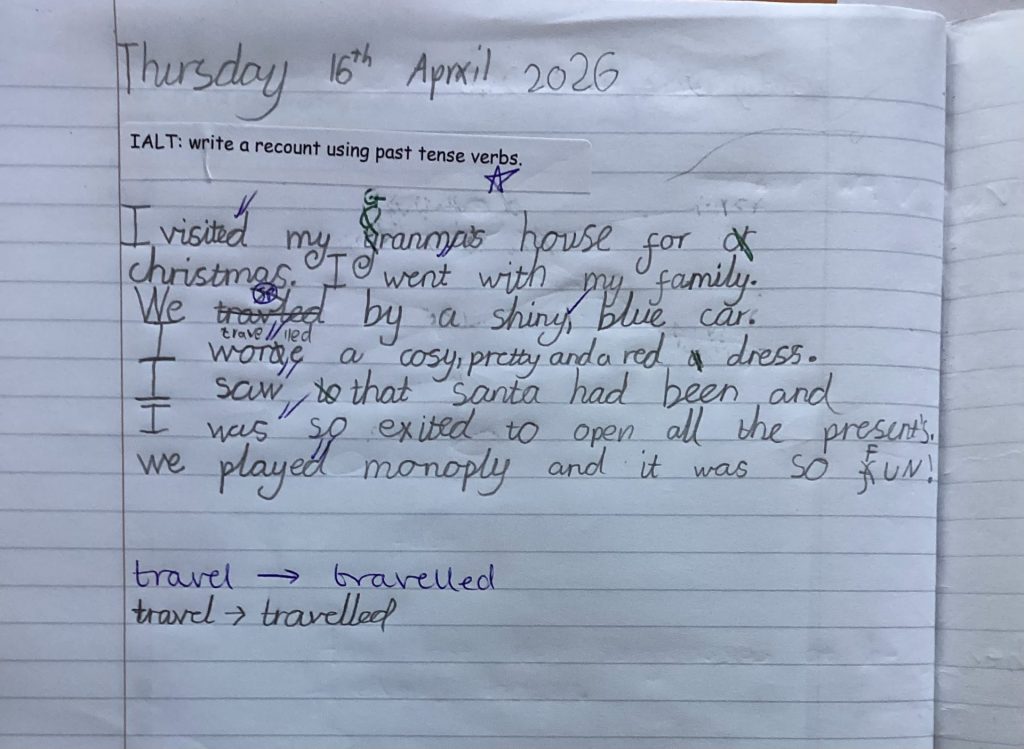 Thursday 16th Aprxil 2026
IALT: write a recount using past tense verbs.
I visited my Granma's house for
christmas. I went with my family.
We travled by a shiny, blue car.
travelled
I wore a cosy, pretty and a red dress.
I saw that santa had been and
I was so exited to open all the present's.
we played monoply and it was so FUN!
travel → travelled
travel → travelled